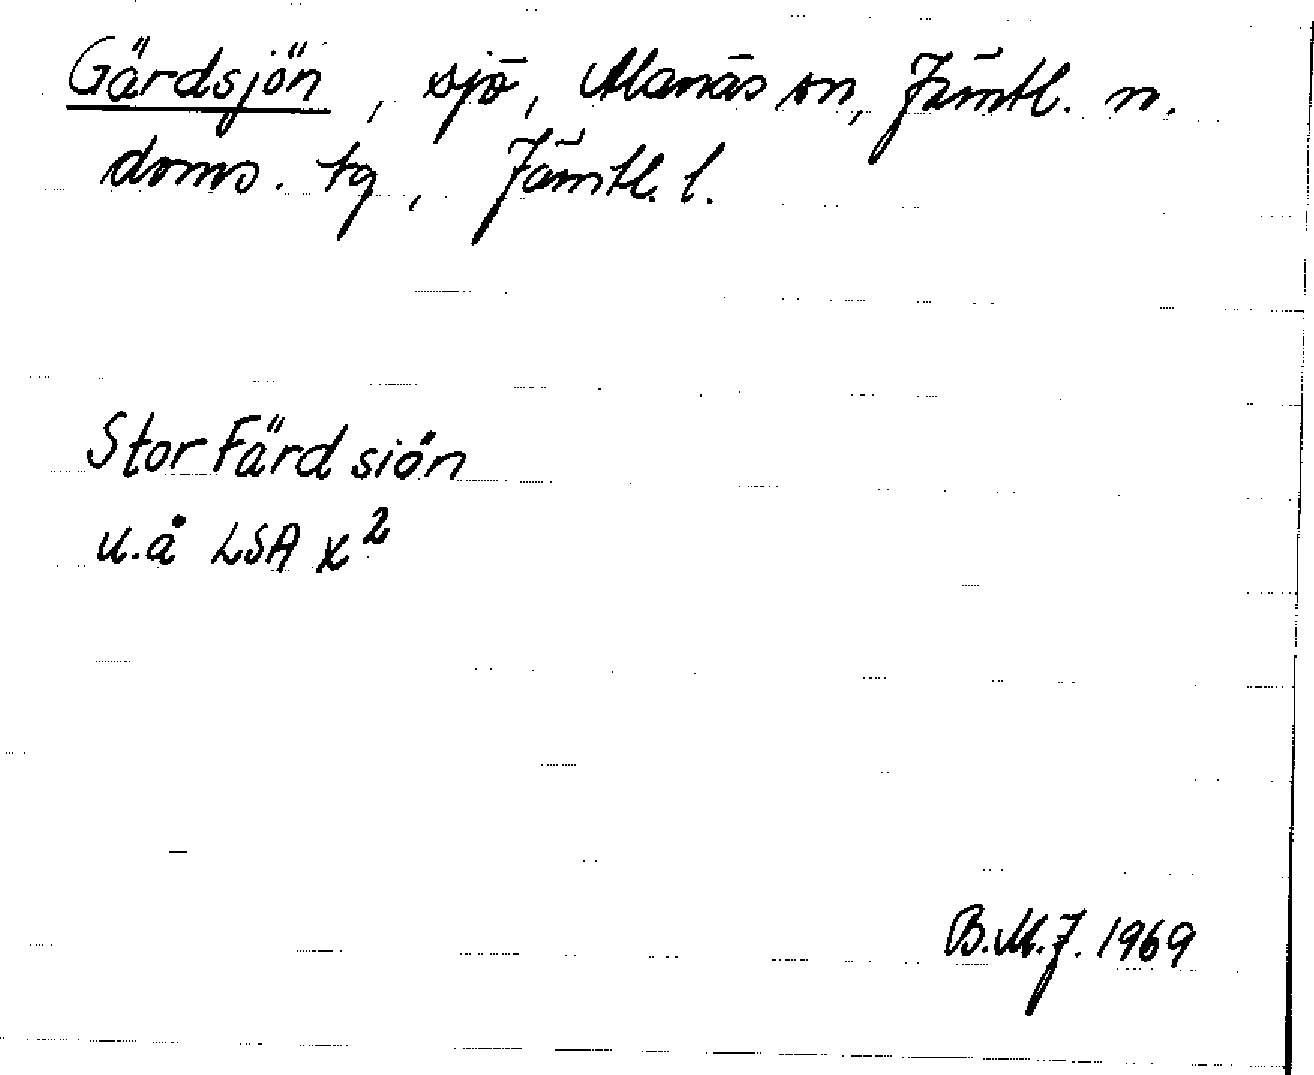 Gärdsjön, sjö, Alanäs sn, Jämtl. n.
doms. tg, Jämtl. l.
Stor Färd siön
u.å LSA x²
B.M.J. 1969